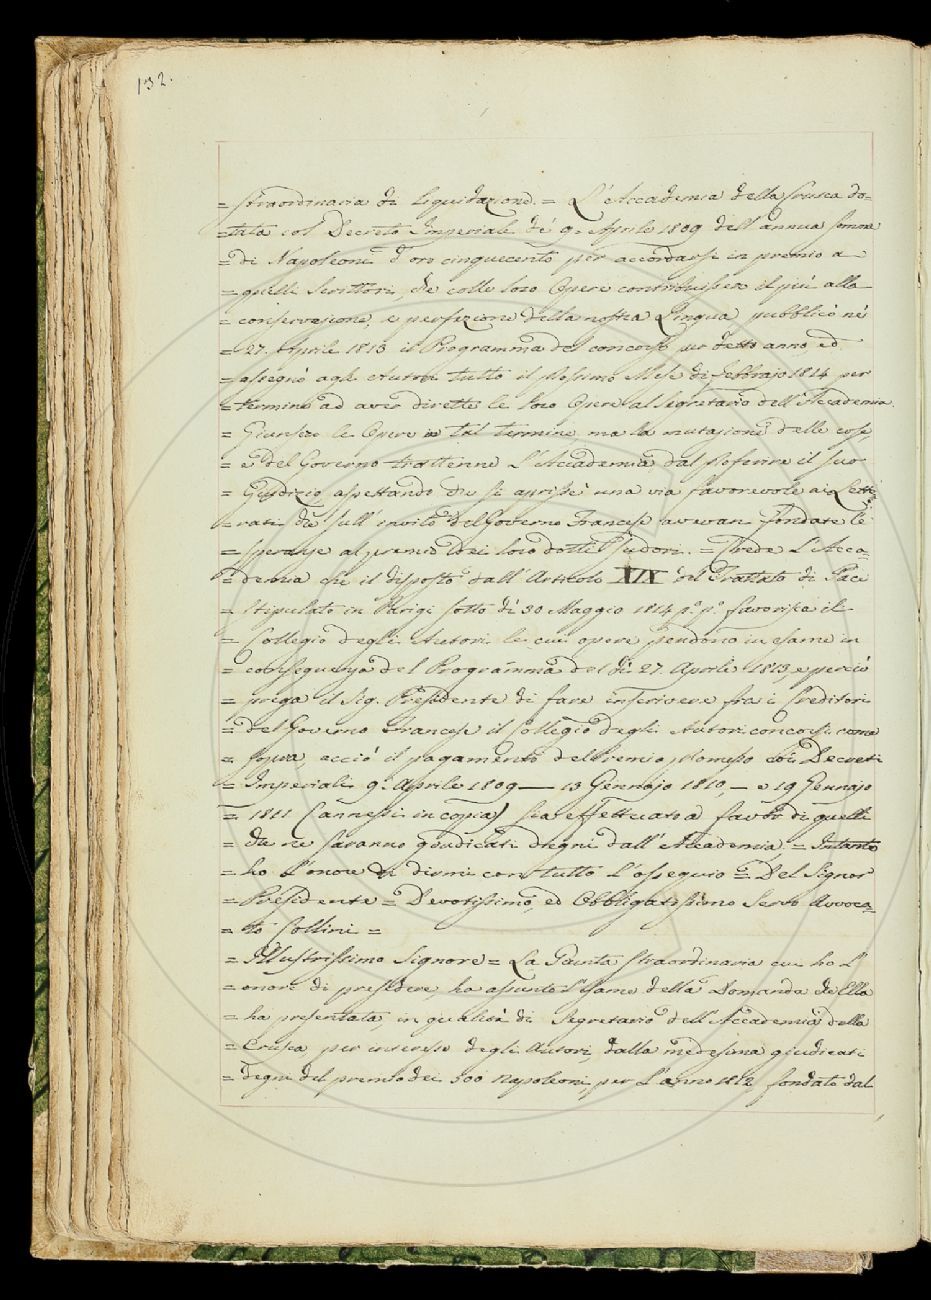 132.
= straordinaria di Liquidazione. = L'Accademia della Crusca do-
= tata col Decreto Imperiale de' 9. Aprile 1809 dell'annua somma
= di Napoleoni d'oro cinquecento per accordarsi in premio a
= quelli Scrittori, che colle loro Opere contribuissero il più alla
= conservazione, e perfezione della nostra Lingua pubblicò ne'
= 27. Aprile 1813 il Programma del concorso per detto anno, ed
= assegnò agli Autori tutto il prossimo Mese di febbrajo 1814 per
= termine ad aver dirette le loro Opere al Segretario dell'Accademia.
= Giunsero le Opere in tal termine ma la mutazione delle cose,
= e del Governo trattenne l'Accademia dal proferire il suo
= Giudizio aspettando che si aprisse una via favorevole ai Lette-
= rati che sull'invito del Governo Francese avevan fondate le
= speranze al premio dei loro dotti sudori. = Crede l'Acca-
= demia che il disposto dall'Articolo XIX del Trattato di Pace
= stipulato in Parigi sotto dì 30 Maggio 1814 p.° p.° favorisca il
= Collegio degli Autori le cui opere pendono in esame in
= conseguenza del Programma del dì 27. Aprile 1813, e perciò
= prega il Sig. Presidente di fare inscrivere fra i Creditori
= del Governo Francese il Collegio degli Autori concorsi come
= sopra acciò il pagamento del Premio promesso coi Decreti
= Imperiali 9. Aprile 1809 — 13 Gennajo 1810, — e 19 Gennajo
= 1811 (annessi in copia) sia effettuato a favor di quelli
= che ne saranno giudicati degni dall'Accademia, = Intanto
= ho l'onore di dirmi con tutto l'ossequio = Del Signor
= Presidente = Devotissimo, ed Obbligatissimo Servo Avvoca-
= to Collini =
= Illustrissimo Signore = La Giunta straordinaria cui ho l'
= onore di presedere, ha assunto l'esame della Domanda che Ella
= ha presentata in qualità di Segretario dell'Accademia della
= Crusca per interesse degli Autori dalla medesima giudicati
= degni del premio dei 500 Napoleoni, per l'anno 1812 fondato dal